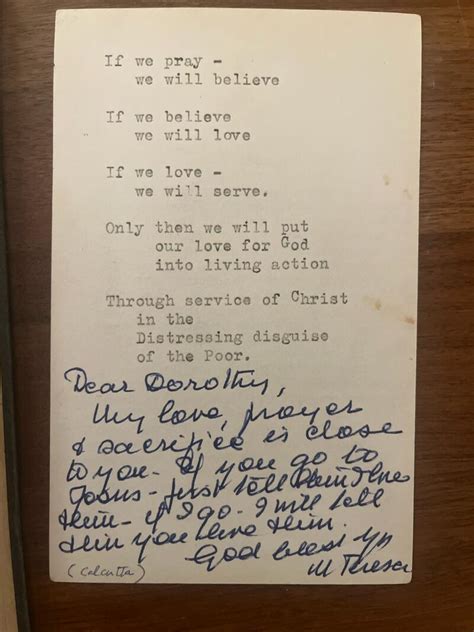 If we pray -
we will believe
If we believe
we will love
If we love -
we will serve.
Only then we will put
our love for God
into living action
Through service of Christ
in the
Distressing disguise
of the Poor.
Dear Dorothy,
My love, prayer
& sacrifice is close
to you - If you go to
Jesus - just tell Him I love
Him - if I go - I will tell
Him you love Him.
God bless you
M Teresa
(Calcutta)